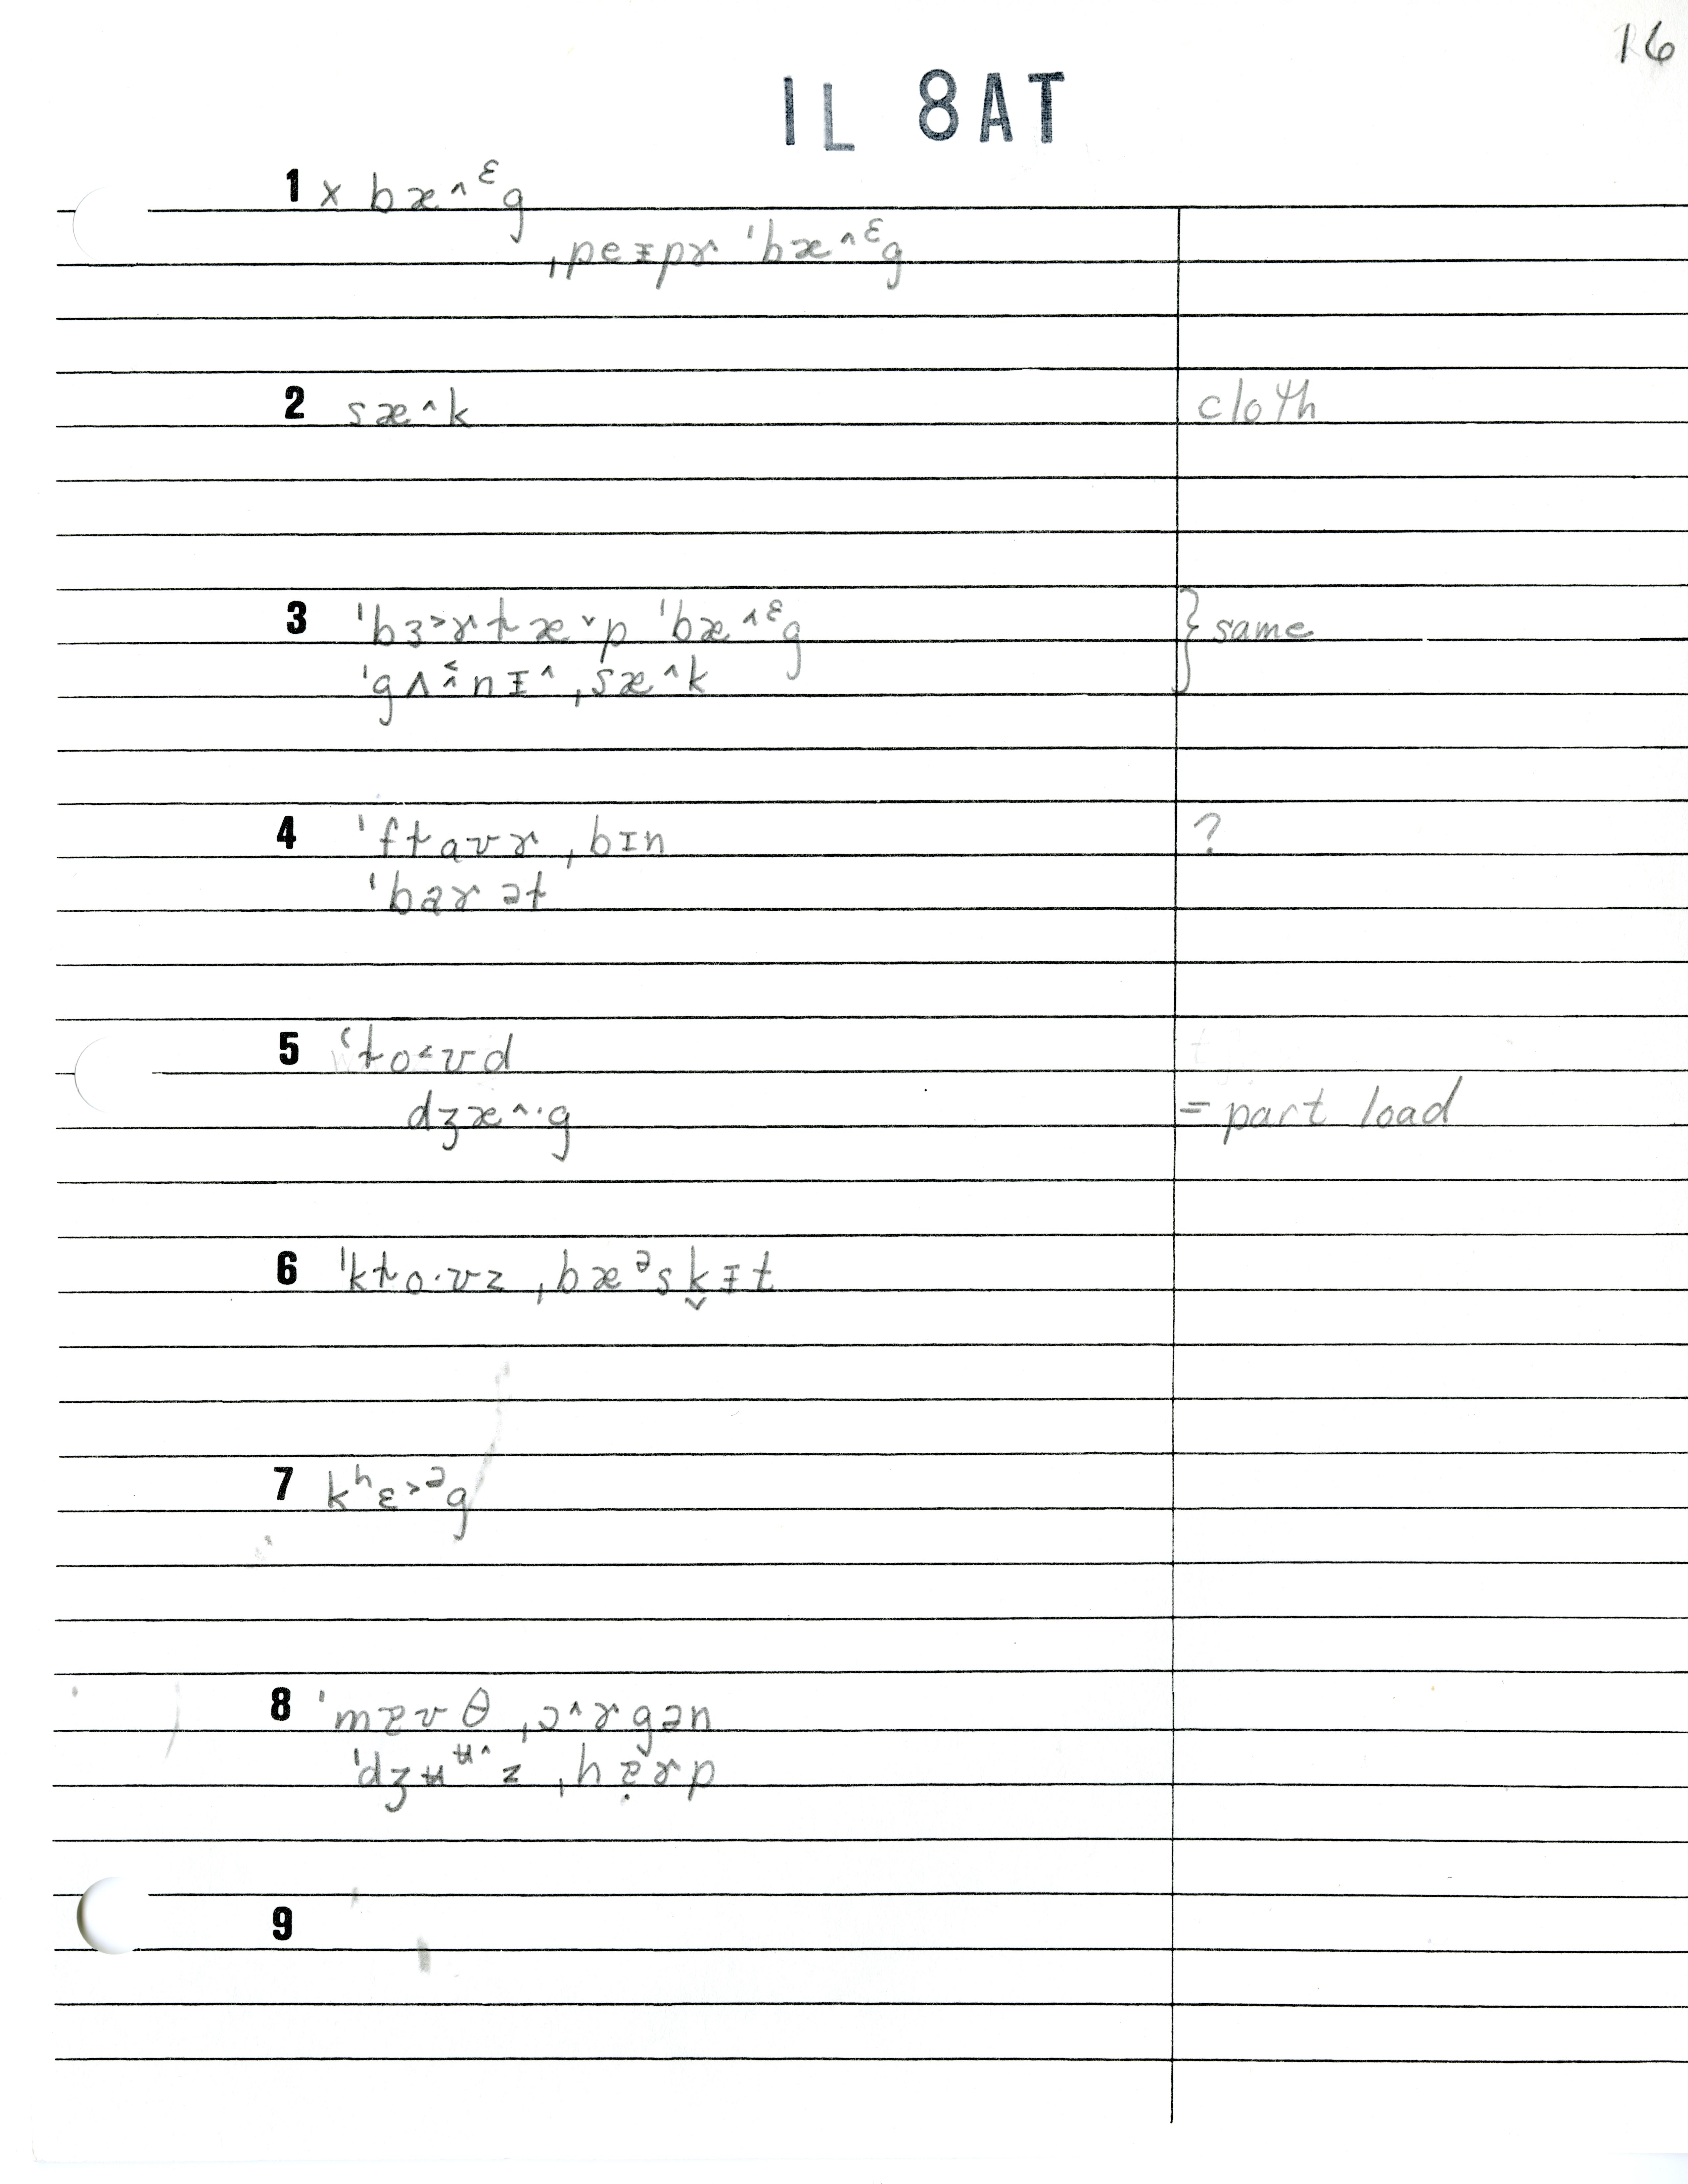 16
IL 8AT
1 x bæ^ᵋg
ˌpeɪpɚ ˈbæ^ᵋg
2 sæ^k cloth
3 ˈbɜ˃ɚɫæ˅p ˈbæ^ᵋg } same
ˈgʌ̂nɪ^ ˌsæ^k
4 ˈfɫaʊɚ ˌbɪn ?
ˈbaɚəɫ
5 ˈɫo˂ʊd
dʒæ^·g = part load
6 ˈkɫo·ʊz ˌbæᵊsk̬ɪt
7 kʰɛ˃ᵊg
8 ˈmaʊθ ˌɔ^ɚgən
ˌhaɚp
9